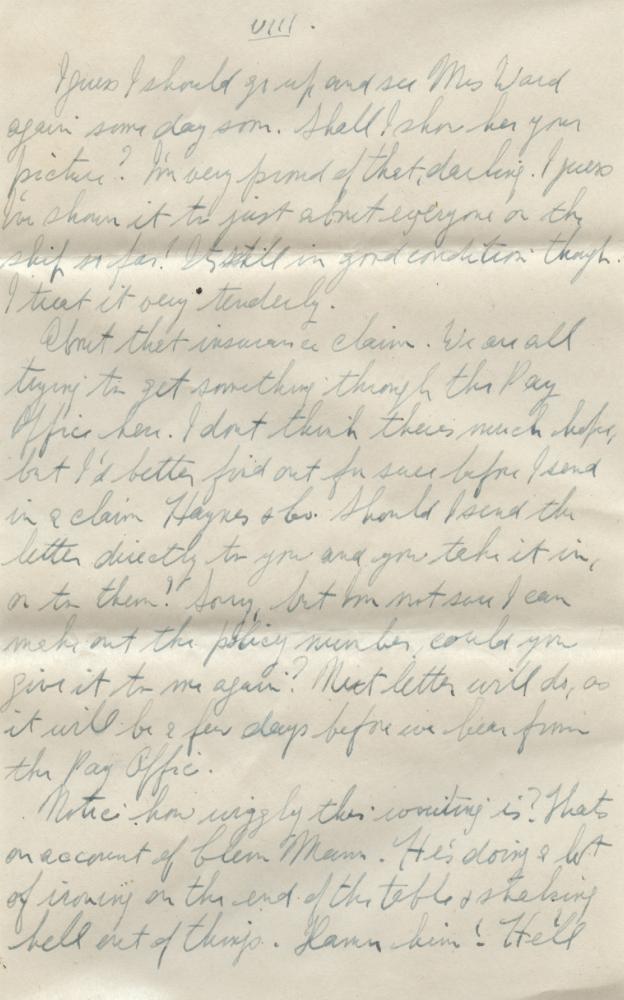 VIII.
I guess I should go up and see Mrs Ward
again some day soon. Shall I show her your
picture? I'm very proud of that, darling. I guess
I've shown it to just about everyone on the
ship so far! It's still in good condition though.
I treat it very tenderly.
About that insurance claim. We are all
trying to get something through the Pay
Office here. I dont think theres much hope,
but I'd better find out for sure before I send
in a claim Haynes & Co. Should I send the
letter directly to you and you take it in,
or to them? Sorry, but I'm not sure I can
make out the policy number, could you
give it to me again? Next letter will do, as
it will be a few days before we hear from
the Pay Office.
Notice how wiggly this writing is? Thats
on account of Clem Mann. He's doing a lot
of ironing on the end of the table & shaking
hell out of things. Damn him! He'll